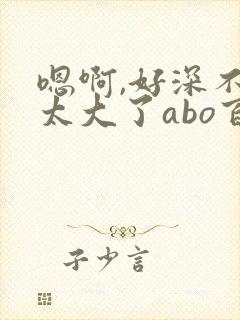 嗯啊,好深不
太大了abo百
子少言